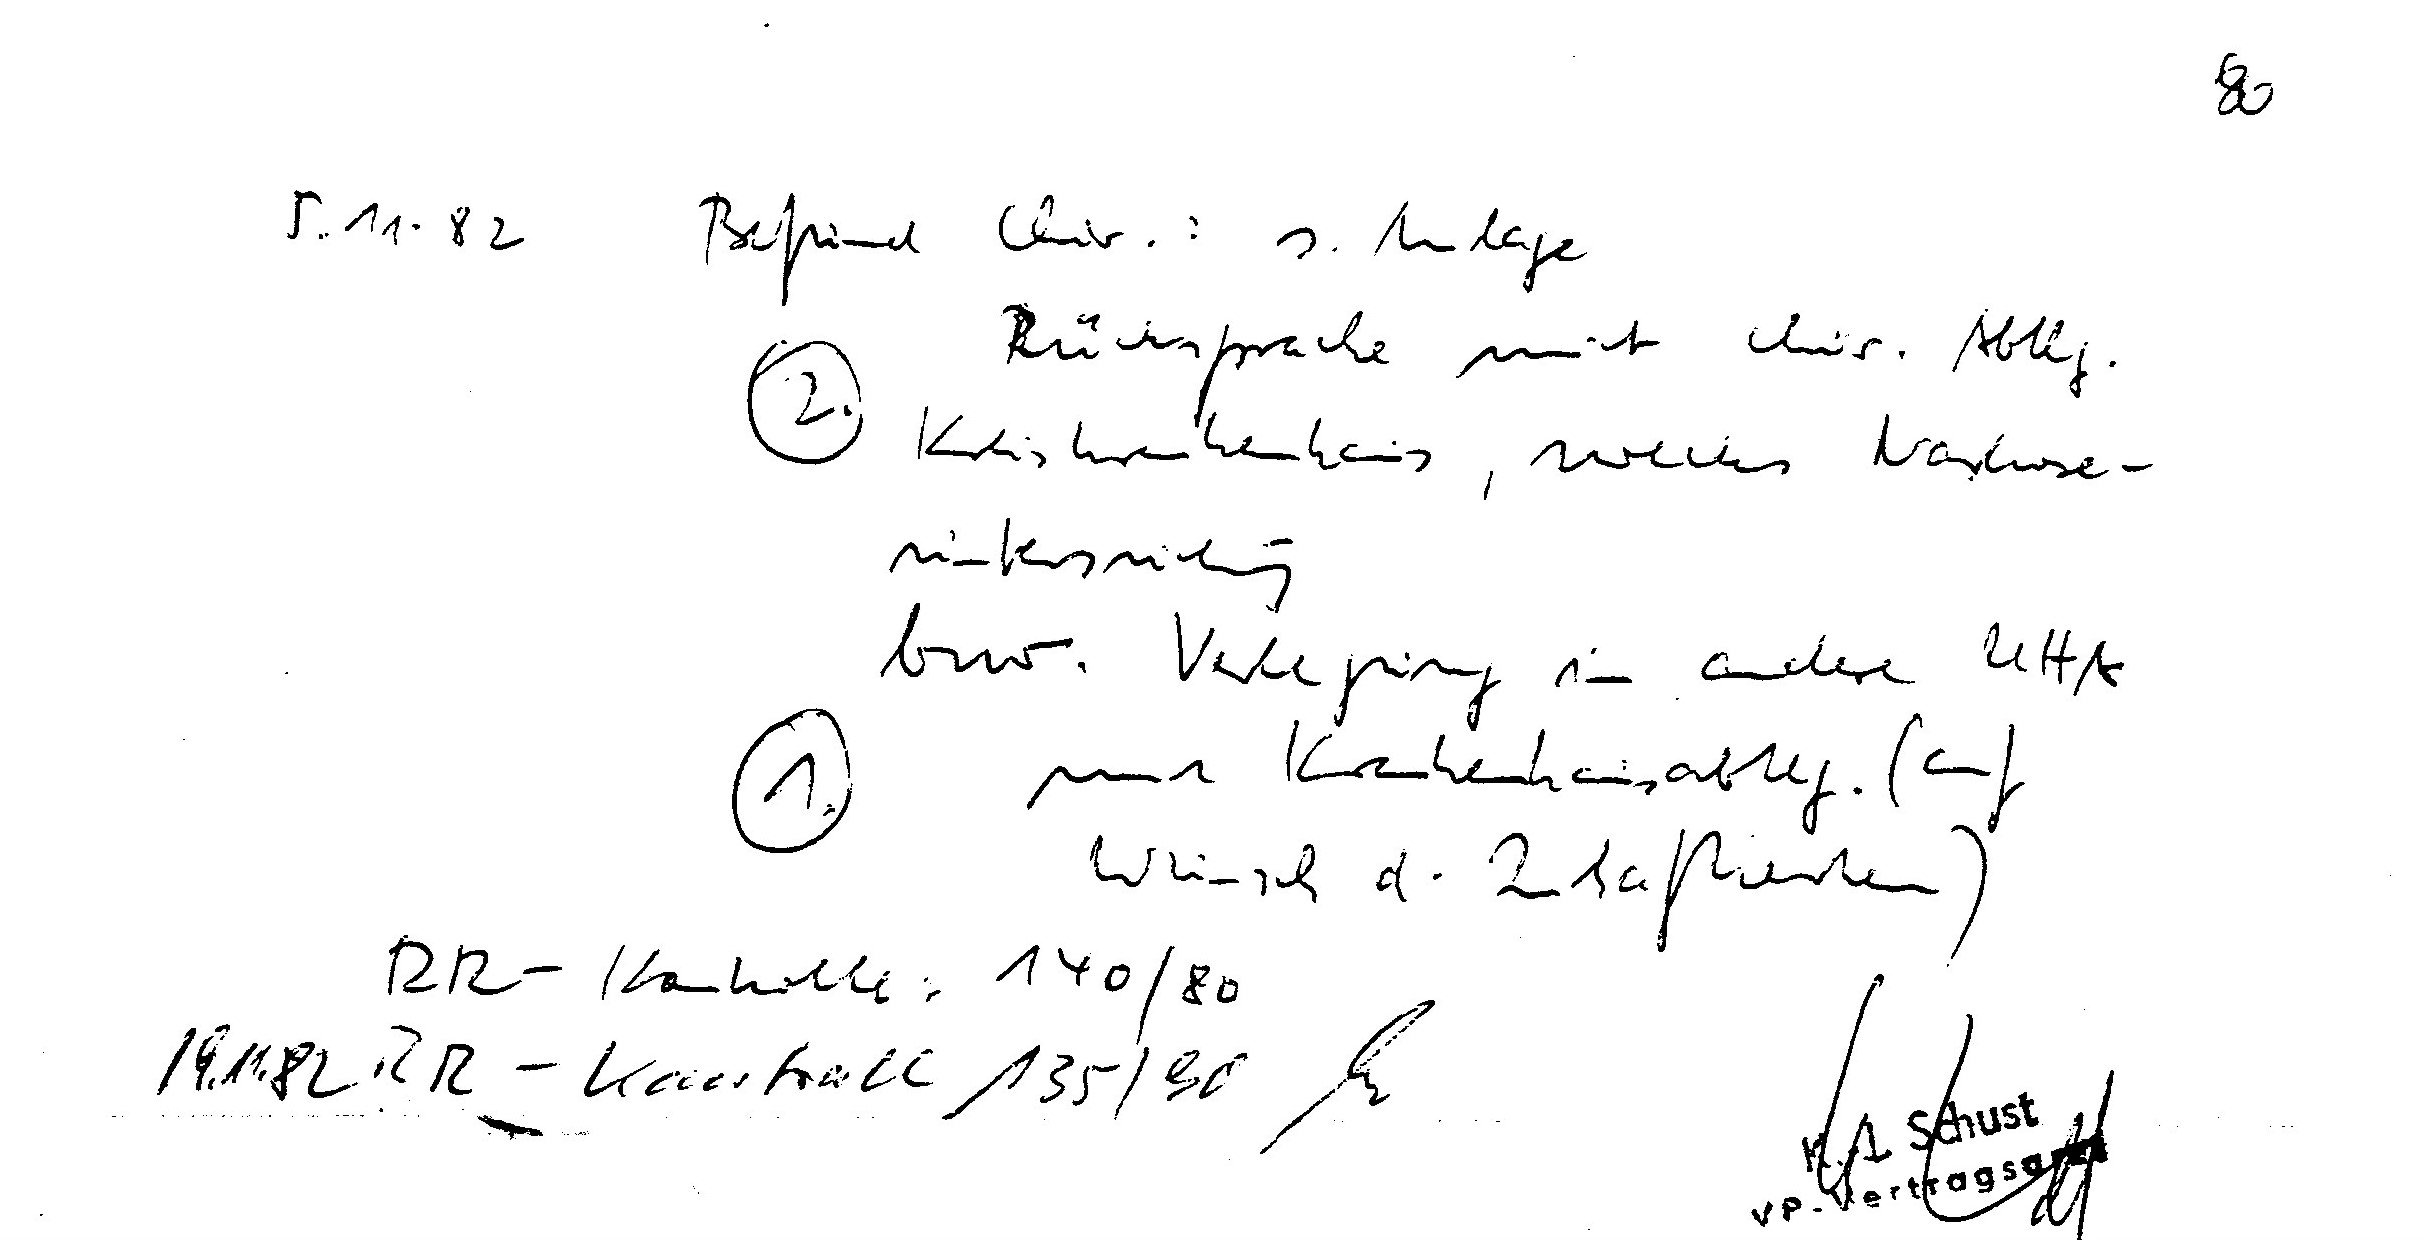 80
5.11.82 Befund Chir.: s. Anlage
Rücksprache mit chir. Abtlg.
2. Kreiskrankenhaus, welches Narkose-
untersuchung
bzw. Verlegung in andere UHA
1. mit Krankenhausabtlg. (auf
Wunsch d. Inhaftierten)
RR-Kontrolle: 140/80
19.11.82 RR-Kontrolle 135/90
Schust
VP.-Vertragsarzt